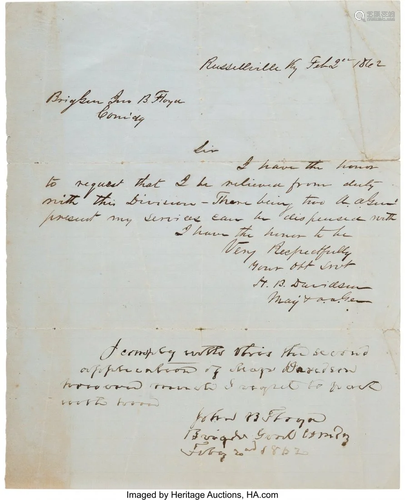 Russellville Ky Feb 2nd 1862
Brig Gen Jno B Floyd
Comdg
Sir
I have the honor
to request that I be relieved from duty
with this Division - There being two A. A. Genl
present my services can be dispensed with
I have the honor to be
Very Respectfully
Your Obt Srvt
H. B. Davidson
Maj & A. A. Gen
I comply with this the second
application of Maj Davidson
however much I regret to part
with him
John B Floyd
Brigdr Genl Comdg
Feby 2nd 1862
Imaged by Heritage Auctions, HA.com